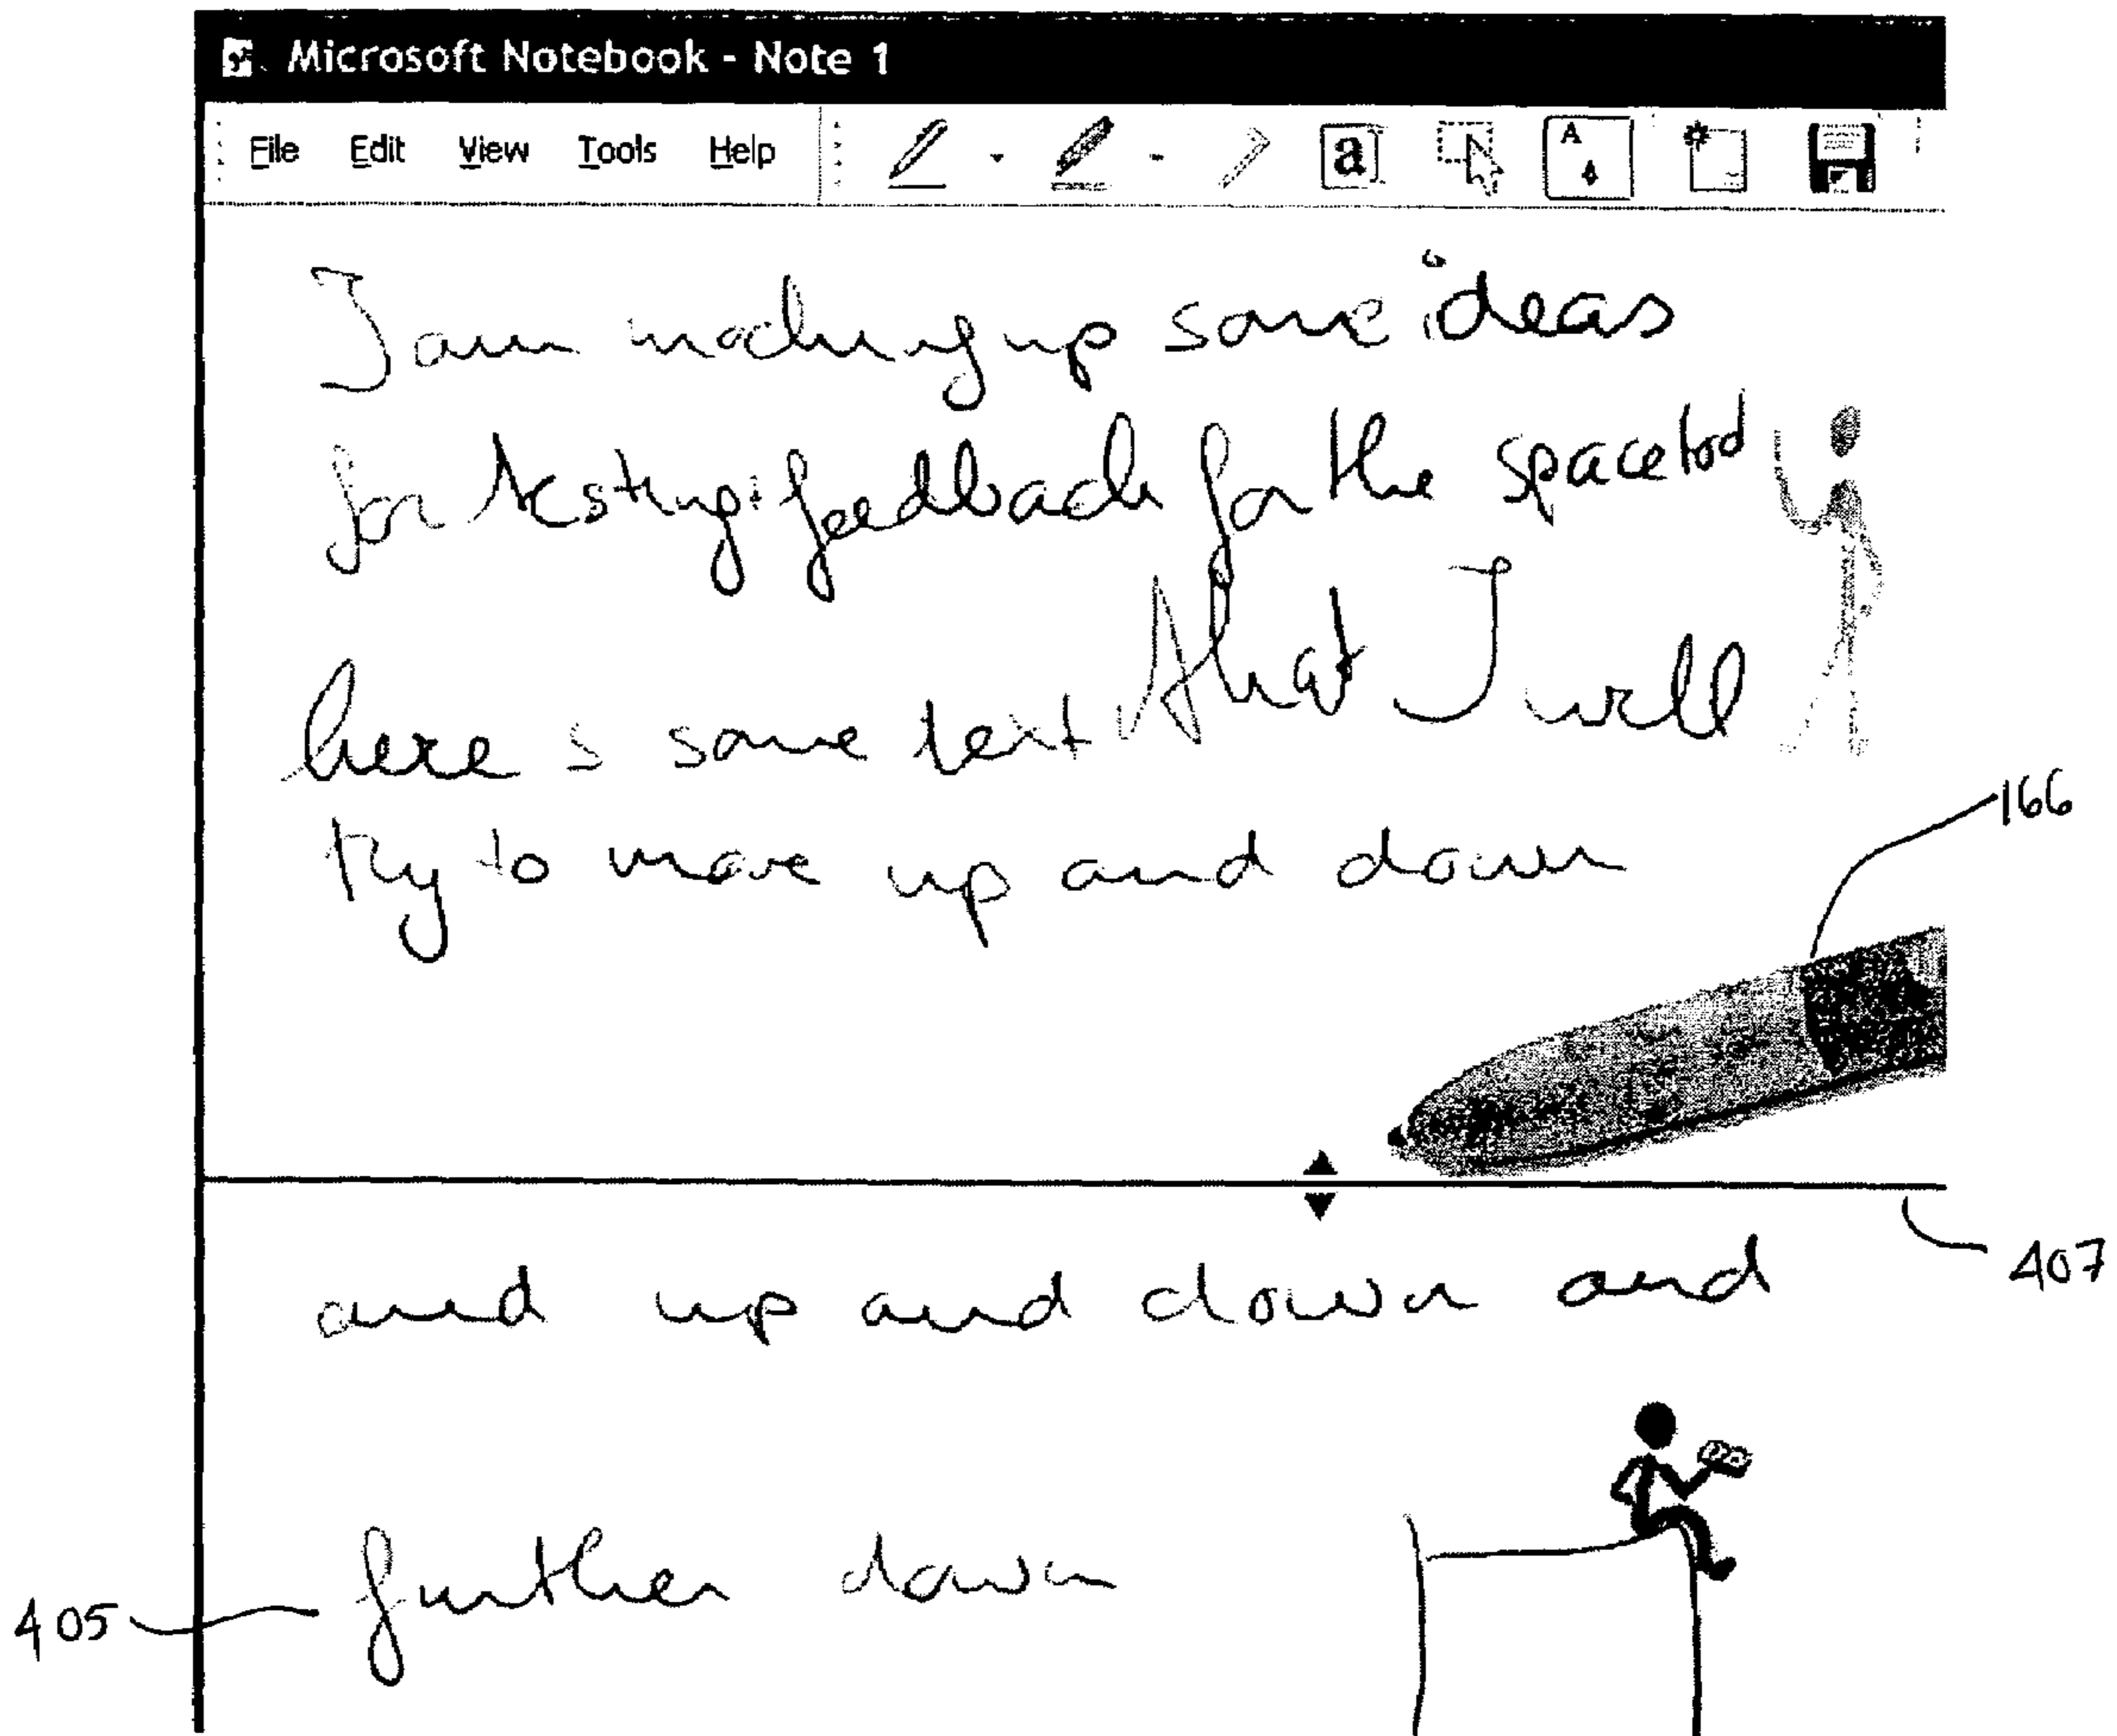 Microsoft Notebook - Note 1
File Edit View Tools Help a A
I am making up some ideas
for testing feedback for the space tool
here s some text that I will
try to move up and down
166
407
and up and down and
further down
405